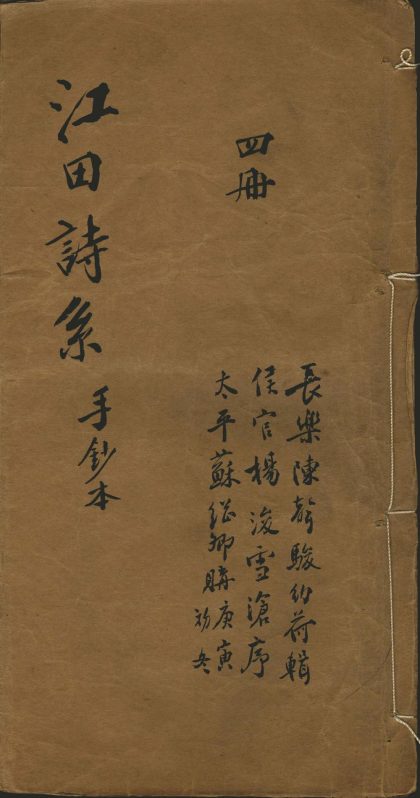 四冊
長樂陳聲駿幼荷輯
侯官楊浚雪滄序
太平蘇繼卿購庚寅
初冬
江田詩系
手鈔本